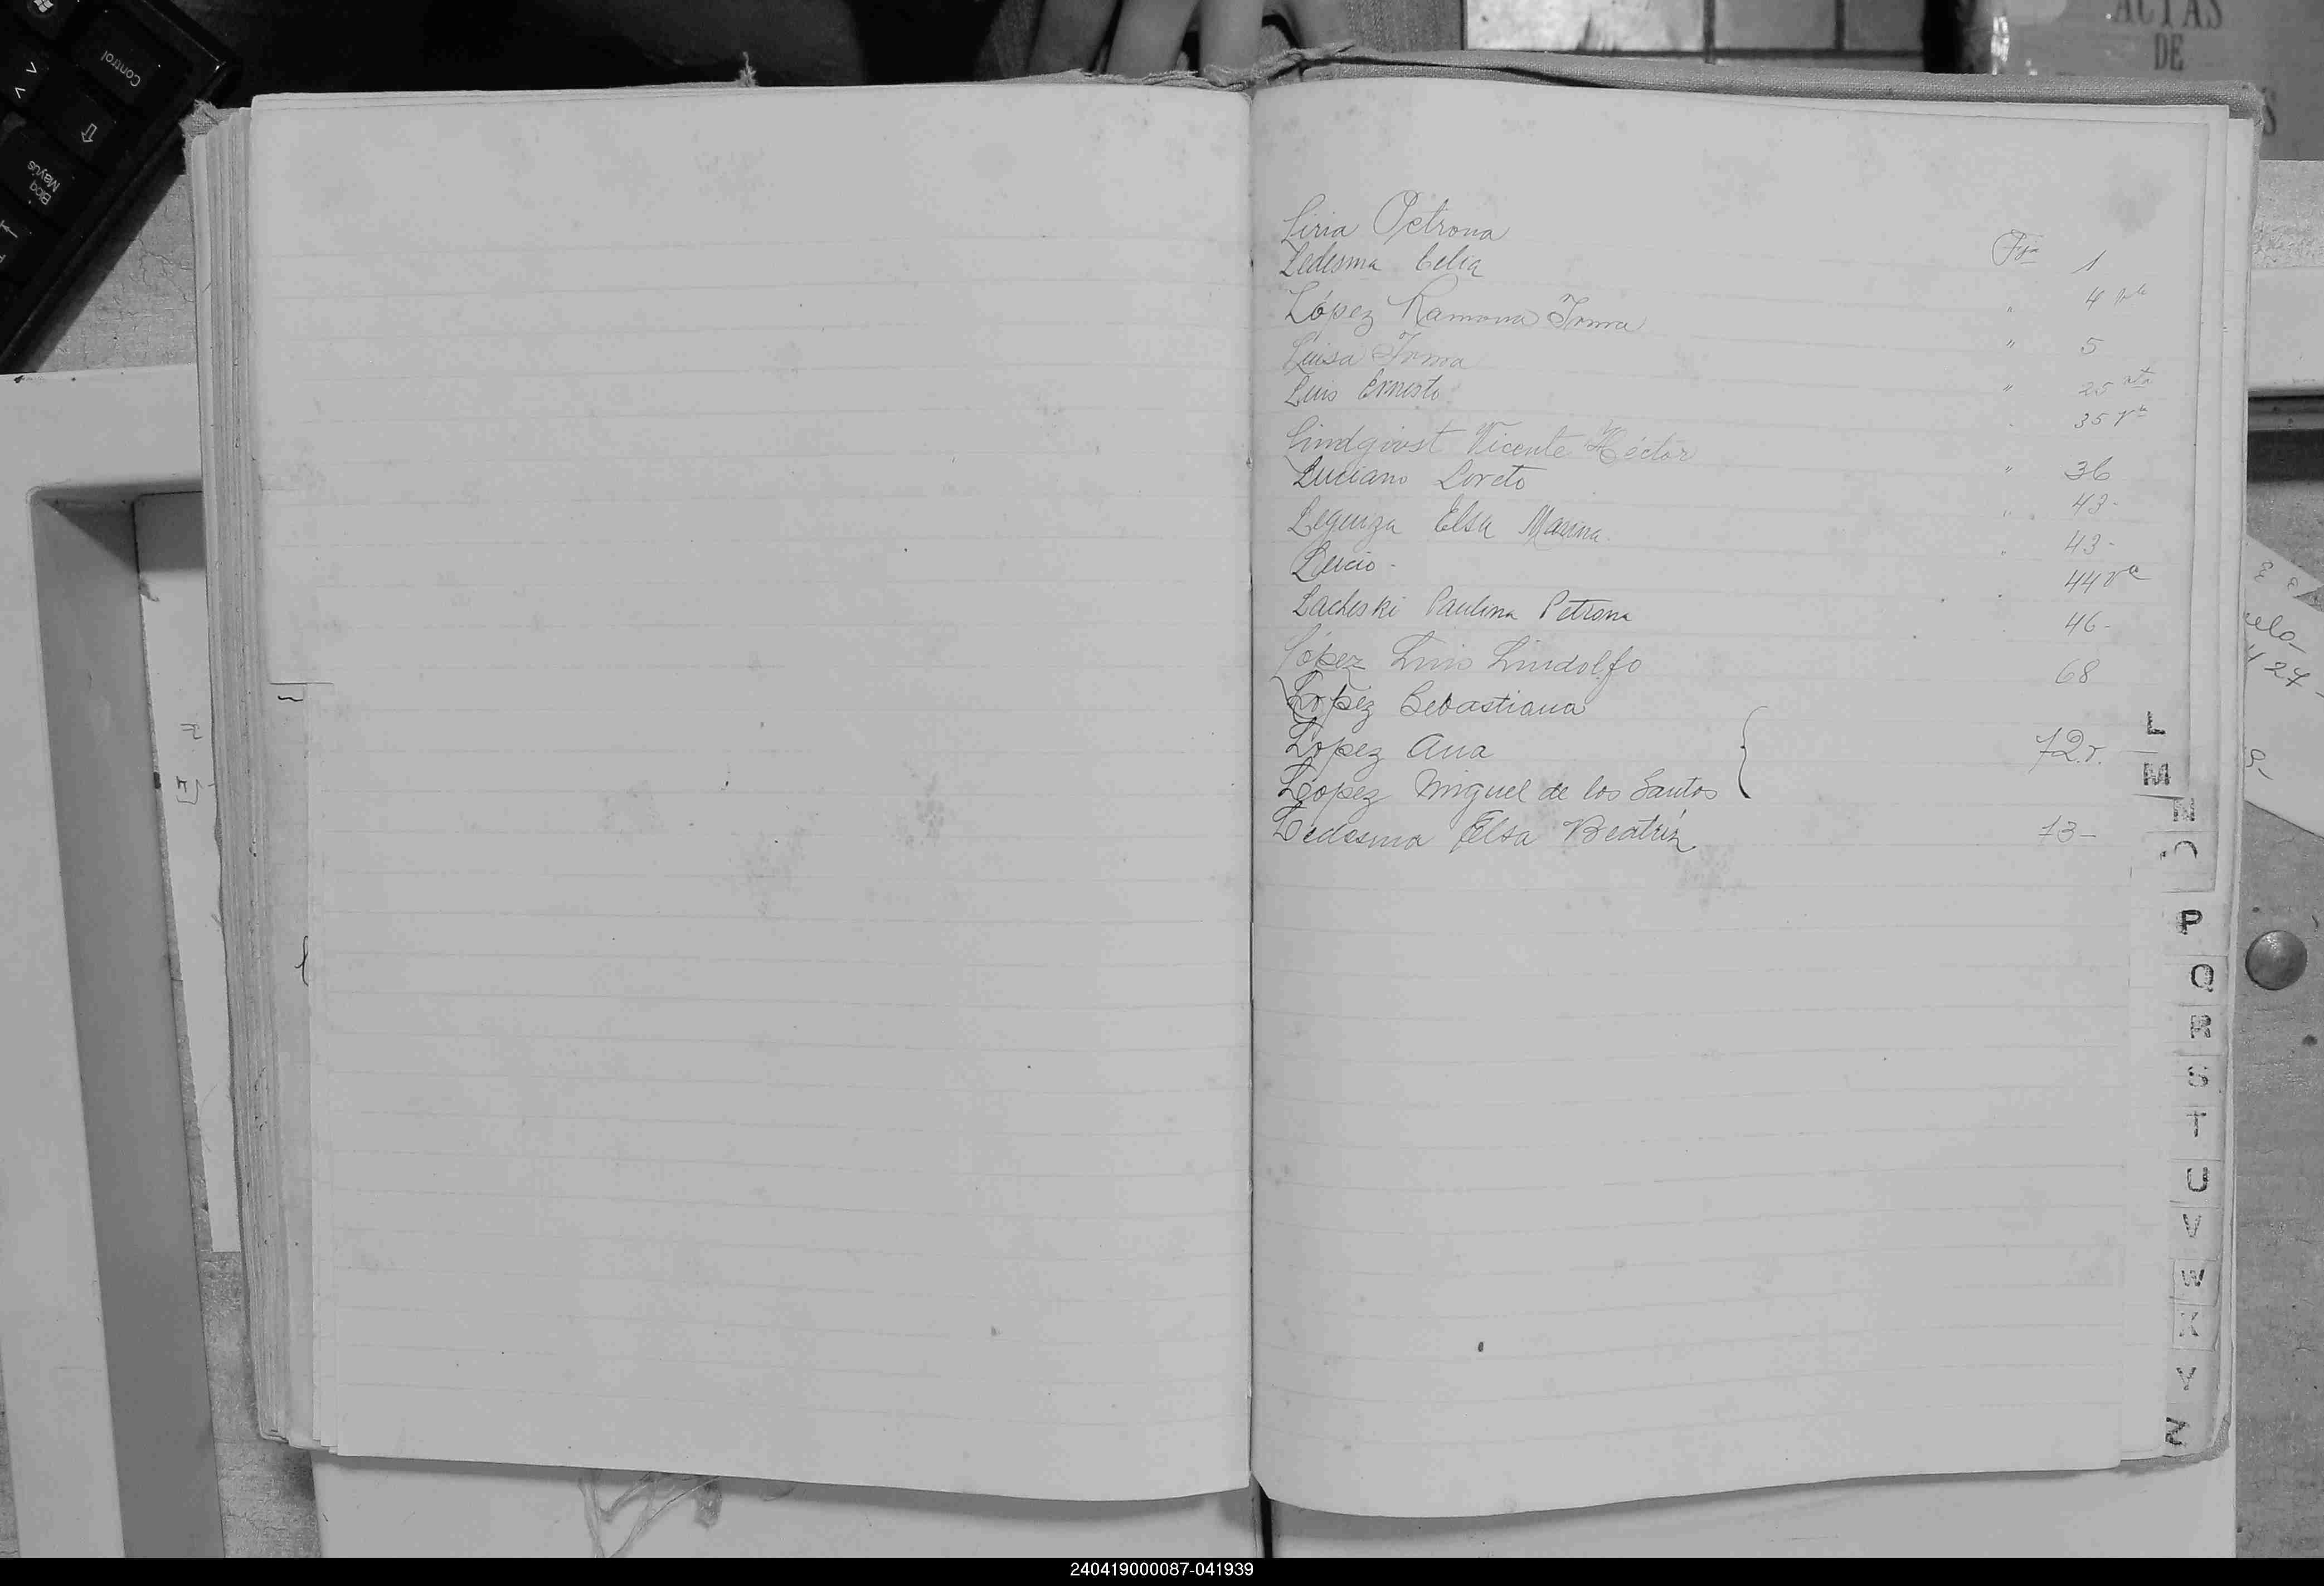 Control
Bloq
Mayús
ACTAS
DE
Liria Petrona Fja 1
Ledesma Celia " 4 vta
López Ramona Irma " 5
Luisa Irma " 25 vta
Luis Ernesto 35 vta
Lindqivst Vicente Héctor " 36
Luciano Loreto " 43-
Leguiza Elsa Marina. " 43-
Lucio - 44 va
Lacheski Paulina Petrona 46-
López Luis Lindolfo 68
López Sebastiana
Lopez Ana { 72.v.
Lopez Miguel de los Santos
Ledesma Elsa Beatriz 73-
L
M
N
O
P
Q
R
S
T
U
V
W
X
Y
Z
240419000087-041939